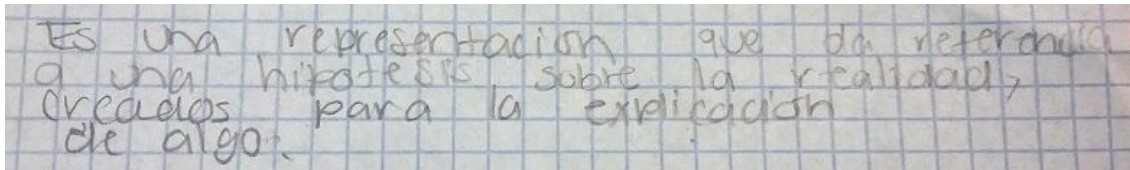 Es una representación que da referencia
a una hipotesis sobre la realidad,
creados para la explicación
de algo.